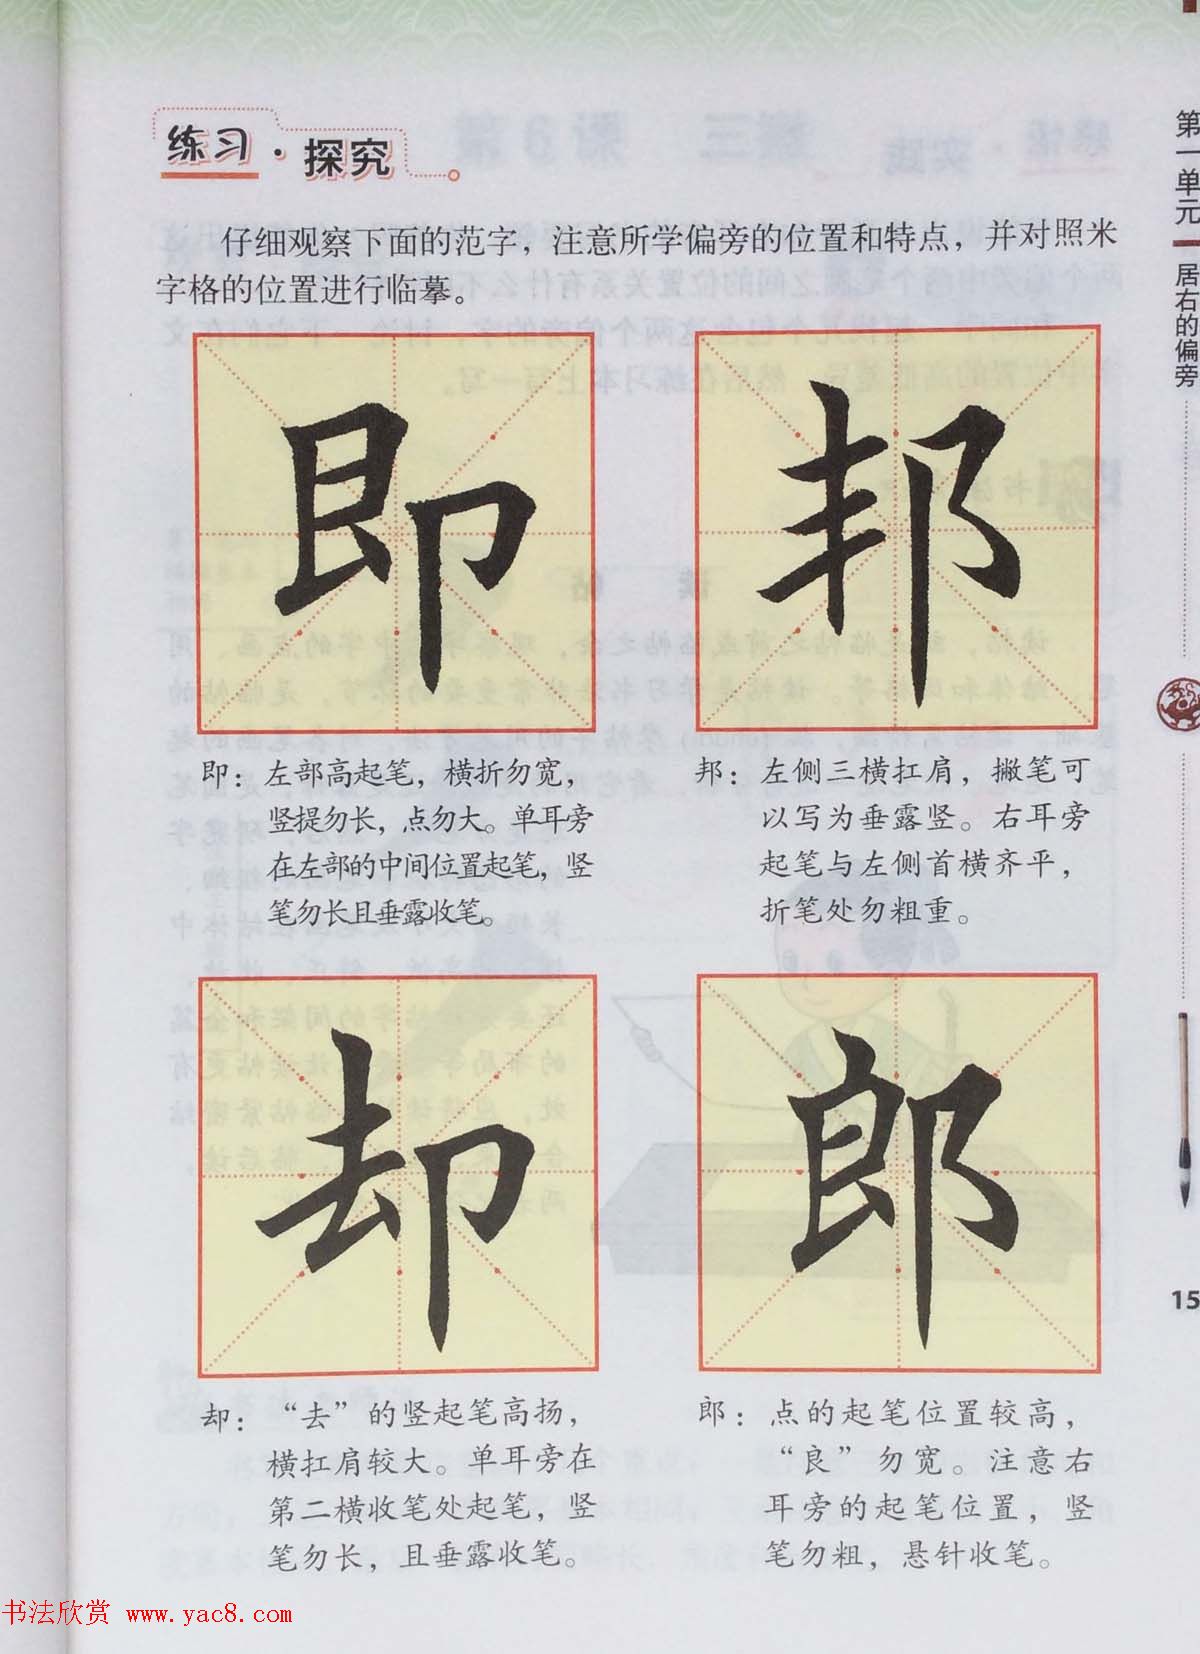 练习·探究
仔细观察下面的范字，注意所学偏旁的位置和特点，并对照米
字格的位置进行临摹。
即
邦
即：左部高起笔，横折勿宽，
竖提勿长，点勿大。单耳旁
在左部的中间位置起笔，竖
笔勿长且垂露收笔。
邦：左侧三横扛肩，撇笔可
以写为垂露竖。右耳旁
起笔与左侧首横齐平，
折笔处勿粗重。
却
郎
却：“去”的竖起笔高扬，
横扛肩较大。单耳旁在
第二横收笔处起笔，竖
笔勿长，且垂露收笔。
郎：点的起笔位置较高，
“良”勿宽。注意右
耳旁的起笔位置，竖
笔勿粗，悬针收笔。
第一单元
居右的偏旁
15
书法欣赏 www.yac8.com